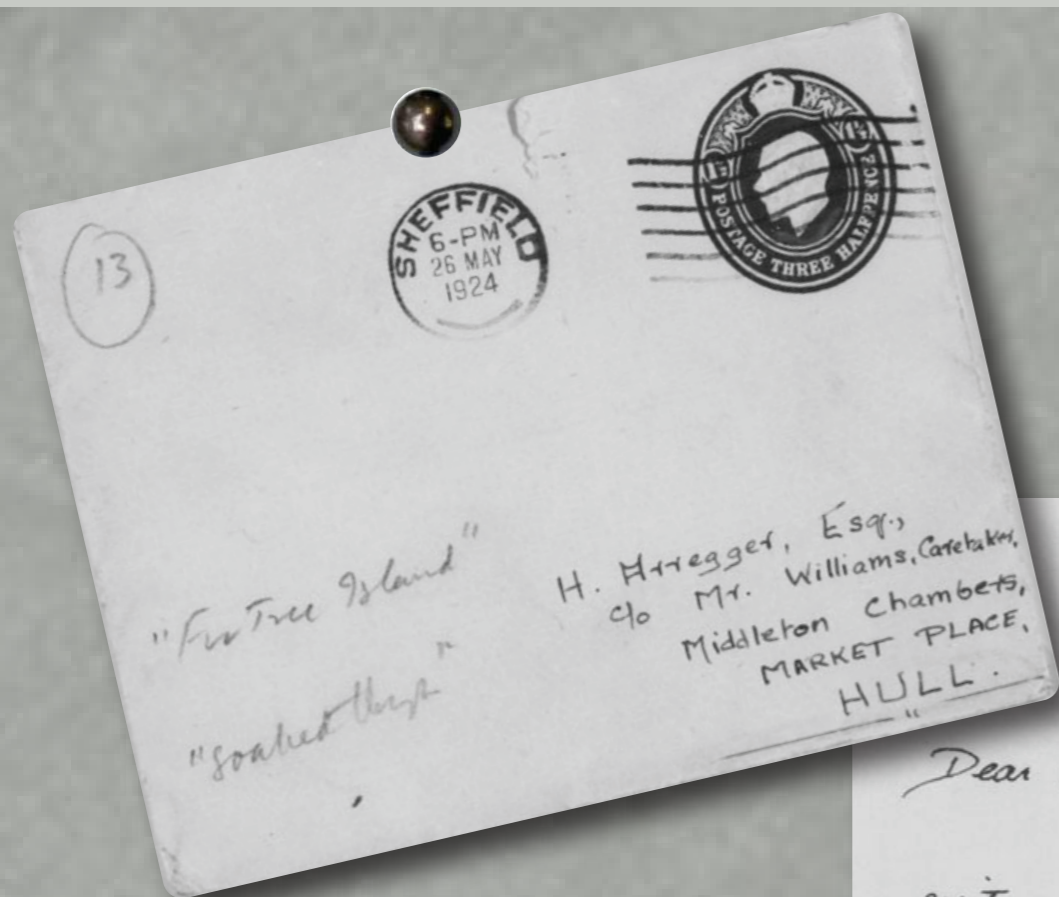 13
SHEFFIELD
6-PM
26 MAY
1924
1½D
1½D
POSTAGE THREE HALFPENCE
"Fir Tree Island"
"soaked through"
H. Arregger, Esq.,
c/o Mr. Williams, Caretaker,
Middleton Chambers,
MARKET PLACE,
HULL.
Dear